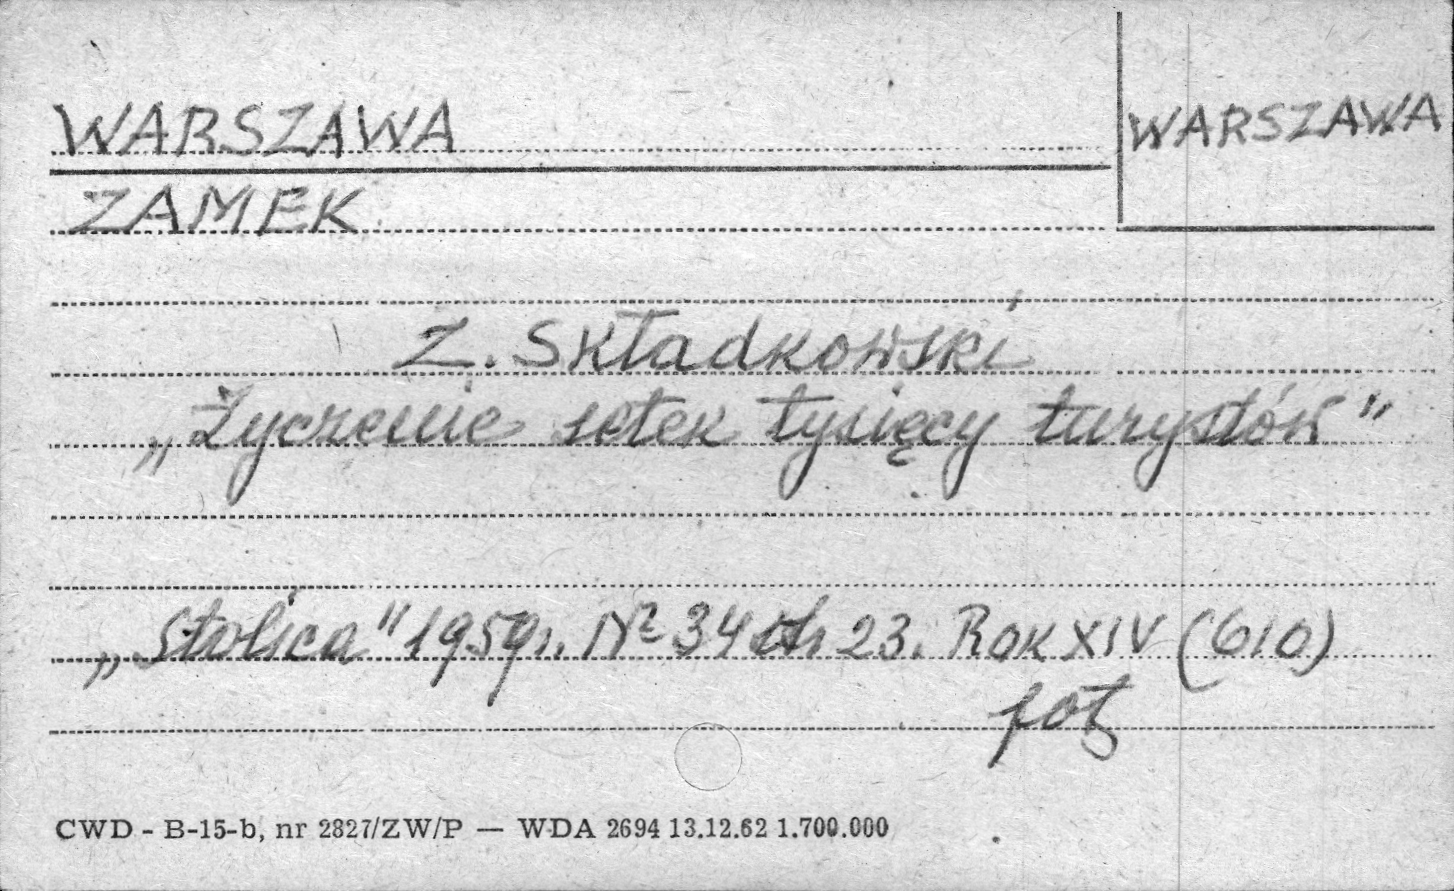 WARSZAWA
WARSZAWA
ZAMEK
Z. Składkowski
„Życzenie setek tysięcy turystów"
„Stolica" 1959r. № 34 str 23. Rok XIV (610)
fot
CWD - B-15-b, nr 2827/ZW/P — WDA 2694 13.12.62 1.700.000